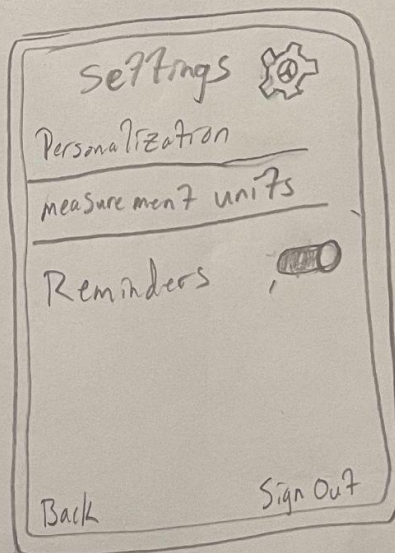 Settings
Personalization
measurement units
Reminders
Back
Sign Out